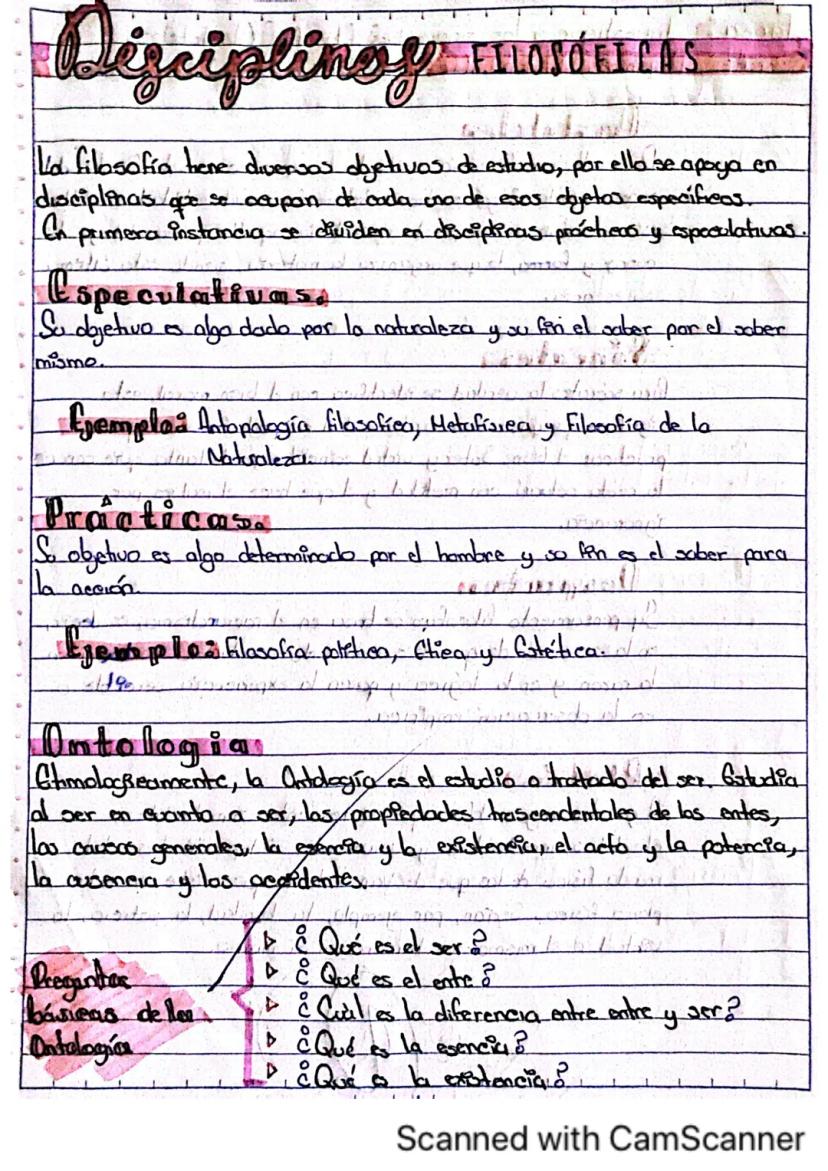 Disciplinas FILOSÓFICAS
La filosofía tiene diversos objetivos de estudio, por ello se apoya en
disciplinas que se ocupan de cada uno de esos objetos específicos.
En primera instancia se dividen en disciplinas prácticas y especulativas.
Especulativas.
Su objetivo es algo dado por la naturaleza y su fin el saber por el saber
mismo.
Ejemplo: Antopología filosofica, Metafísica y Filosofía de la
Naturaleza.
Prácticas.
Su objetivo es algo determinado por el hombre y su fin es el saber para
la acción.
Ejemplo: Filosofía política, Etica y Estética.
Ontologia
Etimologicamente, la Ontología es el estudio o tratado del ser. Estudia
al ser en cuanto a ser, las propiedades trascendentales de los entes,
las causas generales, la esencia y la existencia, el acto y la potencia,
la ausencia y los accidentes.
Preguntas
básicas de la
Ontología
▷ ¿Qué es el ser?
▷ ¿Qué es el ente?
▷ ¿Cuál es la diferencia entre entre y ser?
▷ ¿Qué es la esencia?
▷ ¿Qué es la existencia?
Scanned with CamScanner